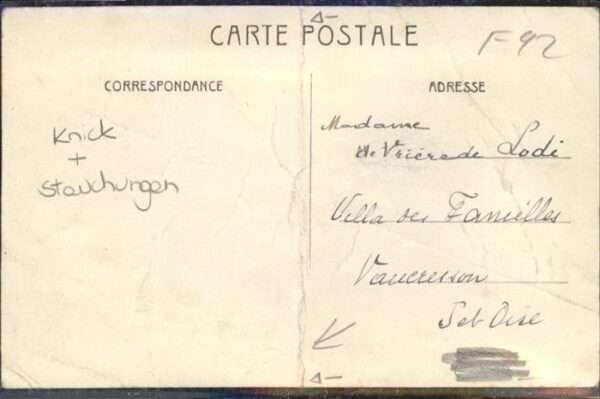 CARTE POSTALE
F92
CORRESPONDANCE
ADRESSE
Knick
+
Stauchungen
Madame
de Lodi
Villa des Familles
Vaucresson
S et Oise